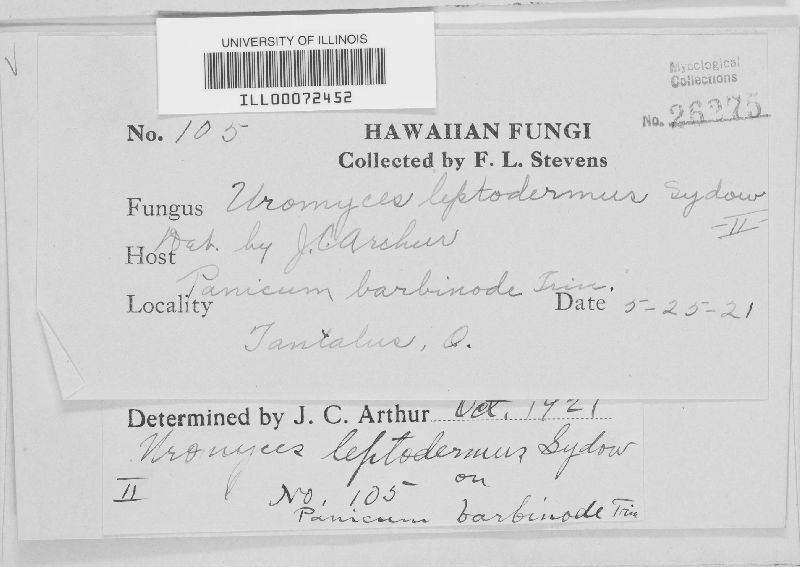 UNIVERSITY OF ILLINOIS
ILL00072452
Mycological
Collections
No. 26375
No. 105
HAWAIIAN FUNGI
Collected by F. L. Stevens
Fungus Uromyces leptodermus Sydow
II
Det. by J. C. Arthur
Host
Panicum barbinode Trin.
Locality
Date 5-25-21
Tantalus, O.
Determined by J. C. Arthur Oct. 1921
Uromyces leptodermus Sydow
II
on
No. 105
Panicum barbinode Trin